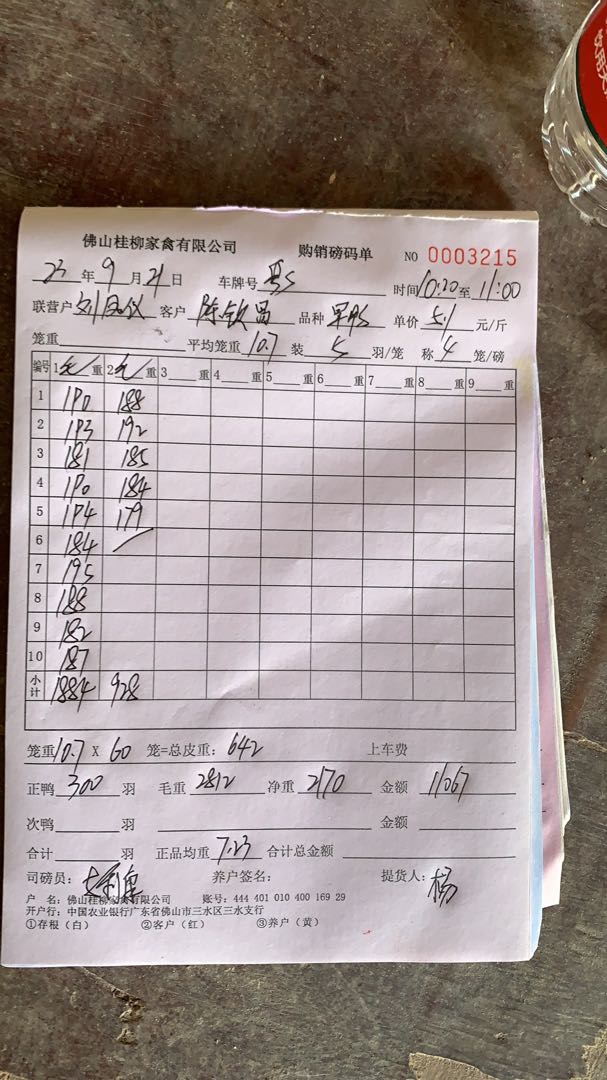 佛山桂柳家禽有限公司 购销磅码单 NO 0003215
23 年 9 月 21 日 车牌号 时间 10:20 至 11:00
联营户 刘 仪 客户 陈钦昌 品种 单价 5.1 元/斤
笼重 平均笼重 10.7 装 5 羽/笼 称 4 笼/磅
编号 1 毛 重 2 毛 重 3 重 4 重 5 重 6 重 7 重 8 重 9 重
1 190 188
2 193 192
3 181 185
4 190 184
5 194 179
6 184
7 195
8 188
9 182
10 187
小计 1884 928
笼重 10.7 X 60 笼=总皮重: 642 上车费
正鸭 300 羽 毛重 2812 净重 2170 金额 11067
次鸭 羽 金额
合计 羽 正品均重 7.23 合计总金额
司磅员: 养户签名: 提货人: 杨
户 名: 佛山桂柳家禽有限公司 账号: 444 401 010 400 169 29
开户行: 中国农业银行广东省佛山市三水区三水支行
①存根(白) ②客户(红) ③养户(黄)